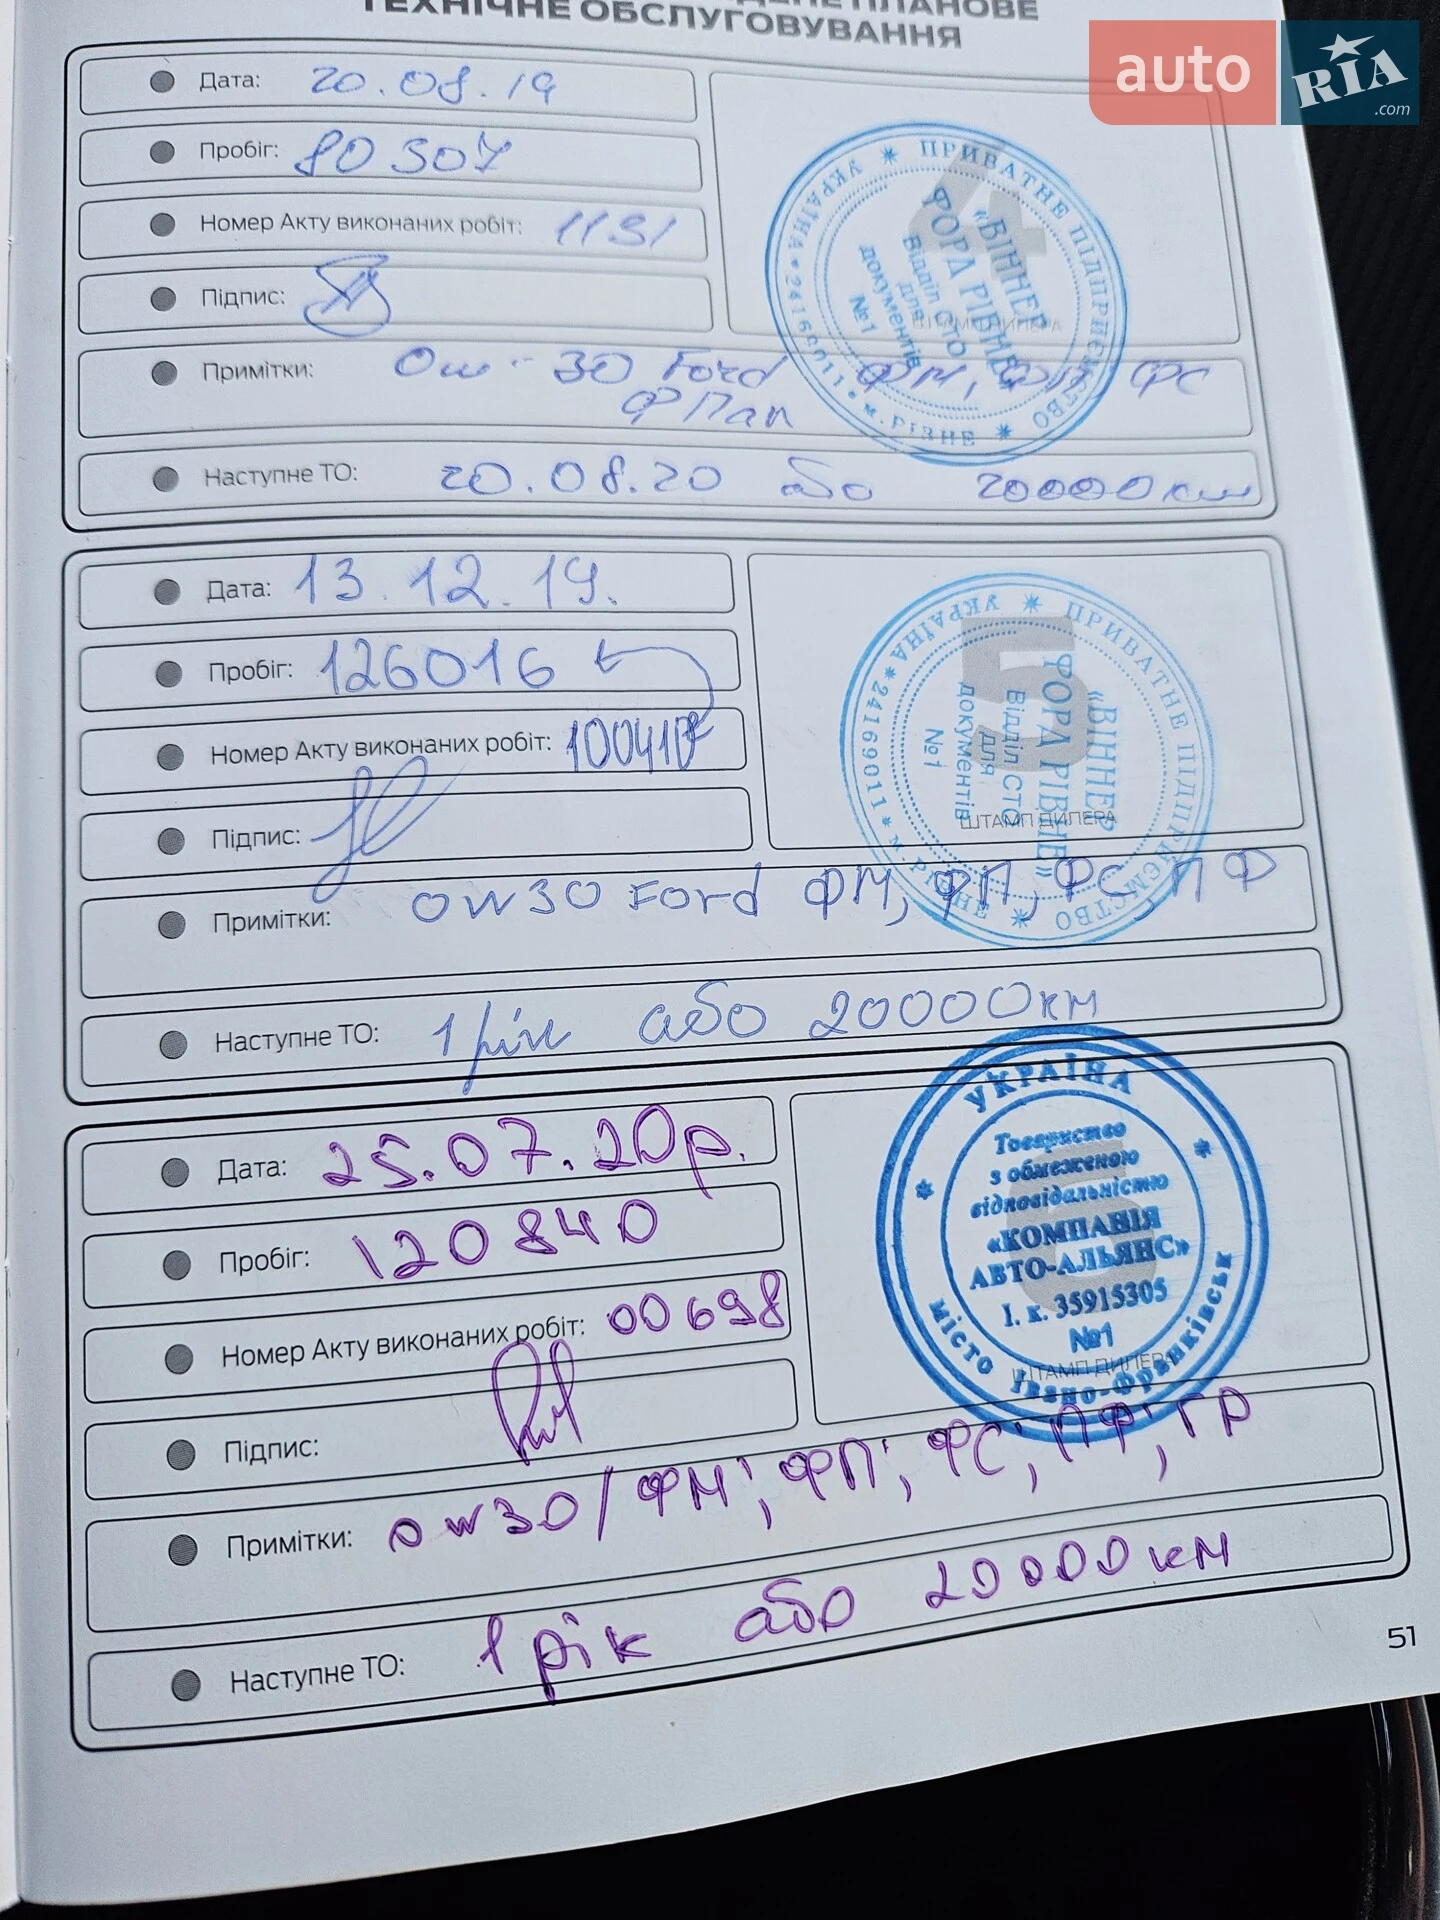 ТЕХНІЧНЕ ОБСЛУГОВУВАННЯ
auto RIA .com
Дата: 20.08.19
Пробіг: 80307
Номер Акту виконаних робіт: 1131
Підпис:
Примітки: Ow-30 Ford ФМ, ФП, ФС
ФПал
Наступне ТО: 20.08.20 або 20000км
4
ШТАМП ДИЛЕРА
УКРАЇНА * ПРИВАТНЕ ПІДПРИЄМСТВО * м. РІВНЕ
«ВІННЕР
ФОРД РІВНЕ»
Відділ СТО
для
документів
№1
Дата: 13.12.19.
Пробіг: 126016
Номер Акту виконаних робіт: 100417
Підпис:
Примітки: OW30 Ford ФМ, ФП, ФС, ПФ
Наступне ТО: 1 рік або 20000км
5
ШТАМП ДИЛЕРА
УКРАЇНА * 24169011 * м. РІВНЕ * ПРИВАТНЕ ПІДПРИЄМСТВО
«ВІННЕР
ФОРД РІВНЕ»
Відділ СТО
для
документів
№1
Дата: 25.07.20р.
Пробіг: 120840
Номер Акту виконаних робіт: 00698
Підпис:
Примітки: ow30/ФМ; ФП; ФС; ПФ; ГР
Наступне ТО: 1 рік або 20000 км
6
ШТАМП ДИЛЕРА
УКРАЇНА
Товариство
з обмеженою
відповідальністю
«КОМПАНІЯ
АВТО-АЛЬЯНС»
І. к. 35915305
№1
місто Івано-Франківськ
51